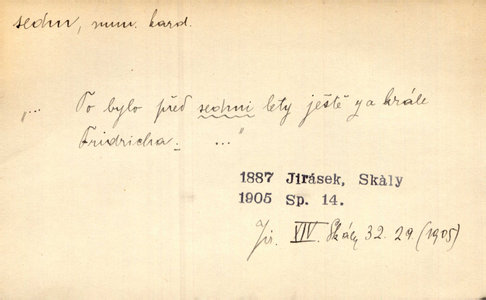 sedm, num. kard.
„... To bylo před sedmi lety ještě za krále
Fridricha. ..."
1887 Jirásek, Skály
1905 Sp. 14.
Jir. XIV. Skály 32. 29 (1905)